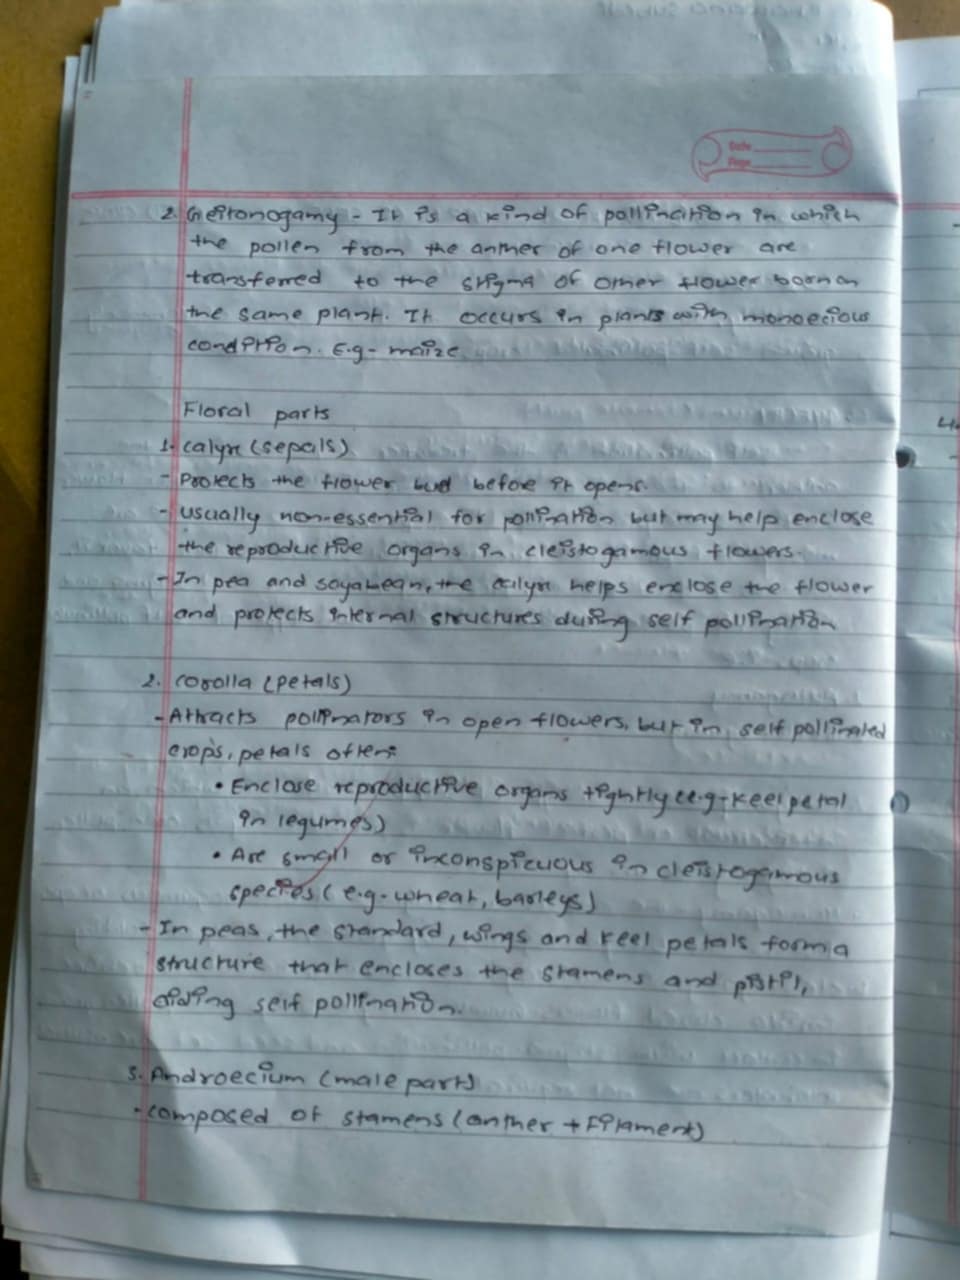 Date
Page
2. Geitonogamy - It is a kind of pollination in which
the pollen from the anther of one flower are
transferred to the stigma of other flower born on
the same plant. It occurs in plants with monoecious
condition. E.g - maize
Floral parts
1. calyx (sepals)
- Protects the flower bud before it opens.
- usually non-essential for pollination but may help enclose
the reproductive organs in cleistogamous flowers.
- In pea and soyabean, the calyx helps enclose the flower
and protects internal structures during self pollination
2. corolla (petals)
- Attracts pollinators in open flowers, but in self pollinated
crops, petals often:
• Enclose reproductive organs tightly (e.g - keel petal
in legumes)
• Are small or inconspicuous in cleistogamous
species (e.g. wheat, barleys)
- In peas, the standard, wings and keel petals form a
structure that encloses the stamens and pistil,
aiding self pollination.
3. Androecium (male part)
- composed of stamens (anther + filament)